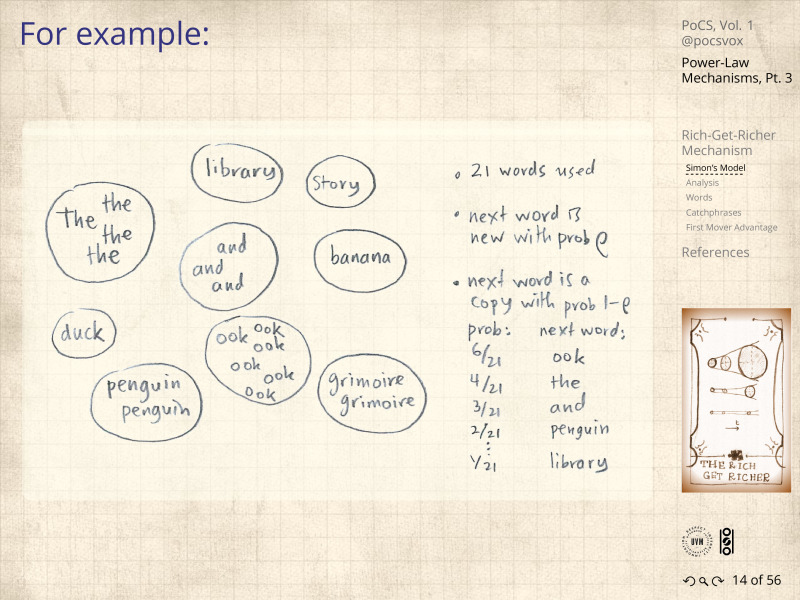 For example:
PoCS, Vol. 1
@pocsvox
Power-Law
Mechanisms, Pt. 3
Rich-Get-Richer
Mechanism
Simon's Model
Analysis
Words
Catchphrases
First Mover Advantage
References
library
Story
The the
the
the
and
and
and
banana
duck
ook ook
ook
ook
ook
ook
penguin
penguin
grimoire
grimoire
• 21 words used
• next word is
new with prob ρ
• next word is a
copy with prob 1-ρ
prob: next word:
6/21 ook
4/21 the
3/21 and
2/21 penguin
⋮
1/21 library
THE RICH
GET RICHER
UVM
14 of 56